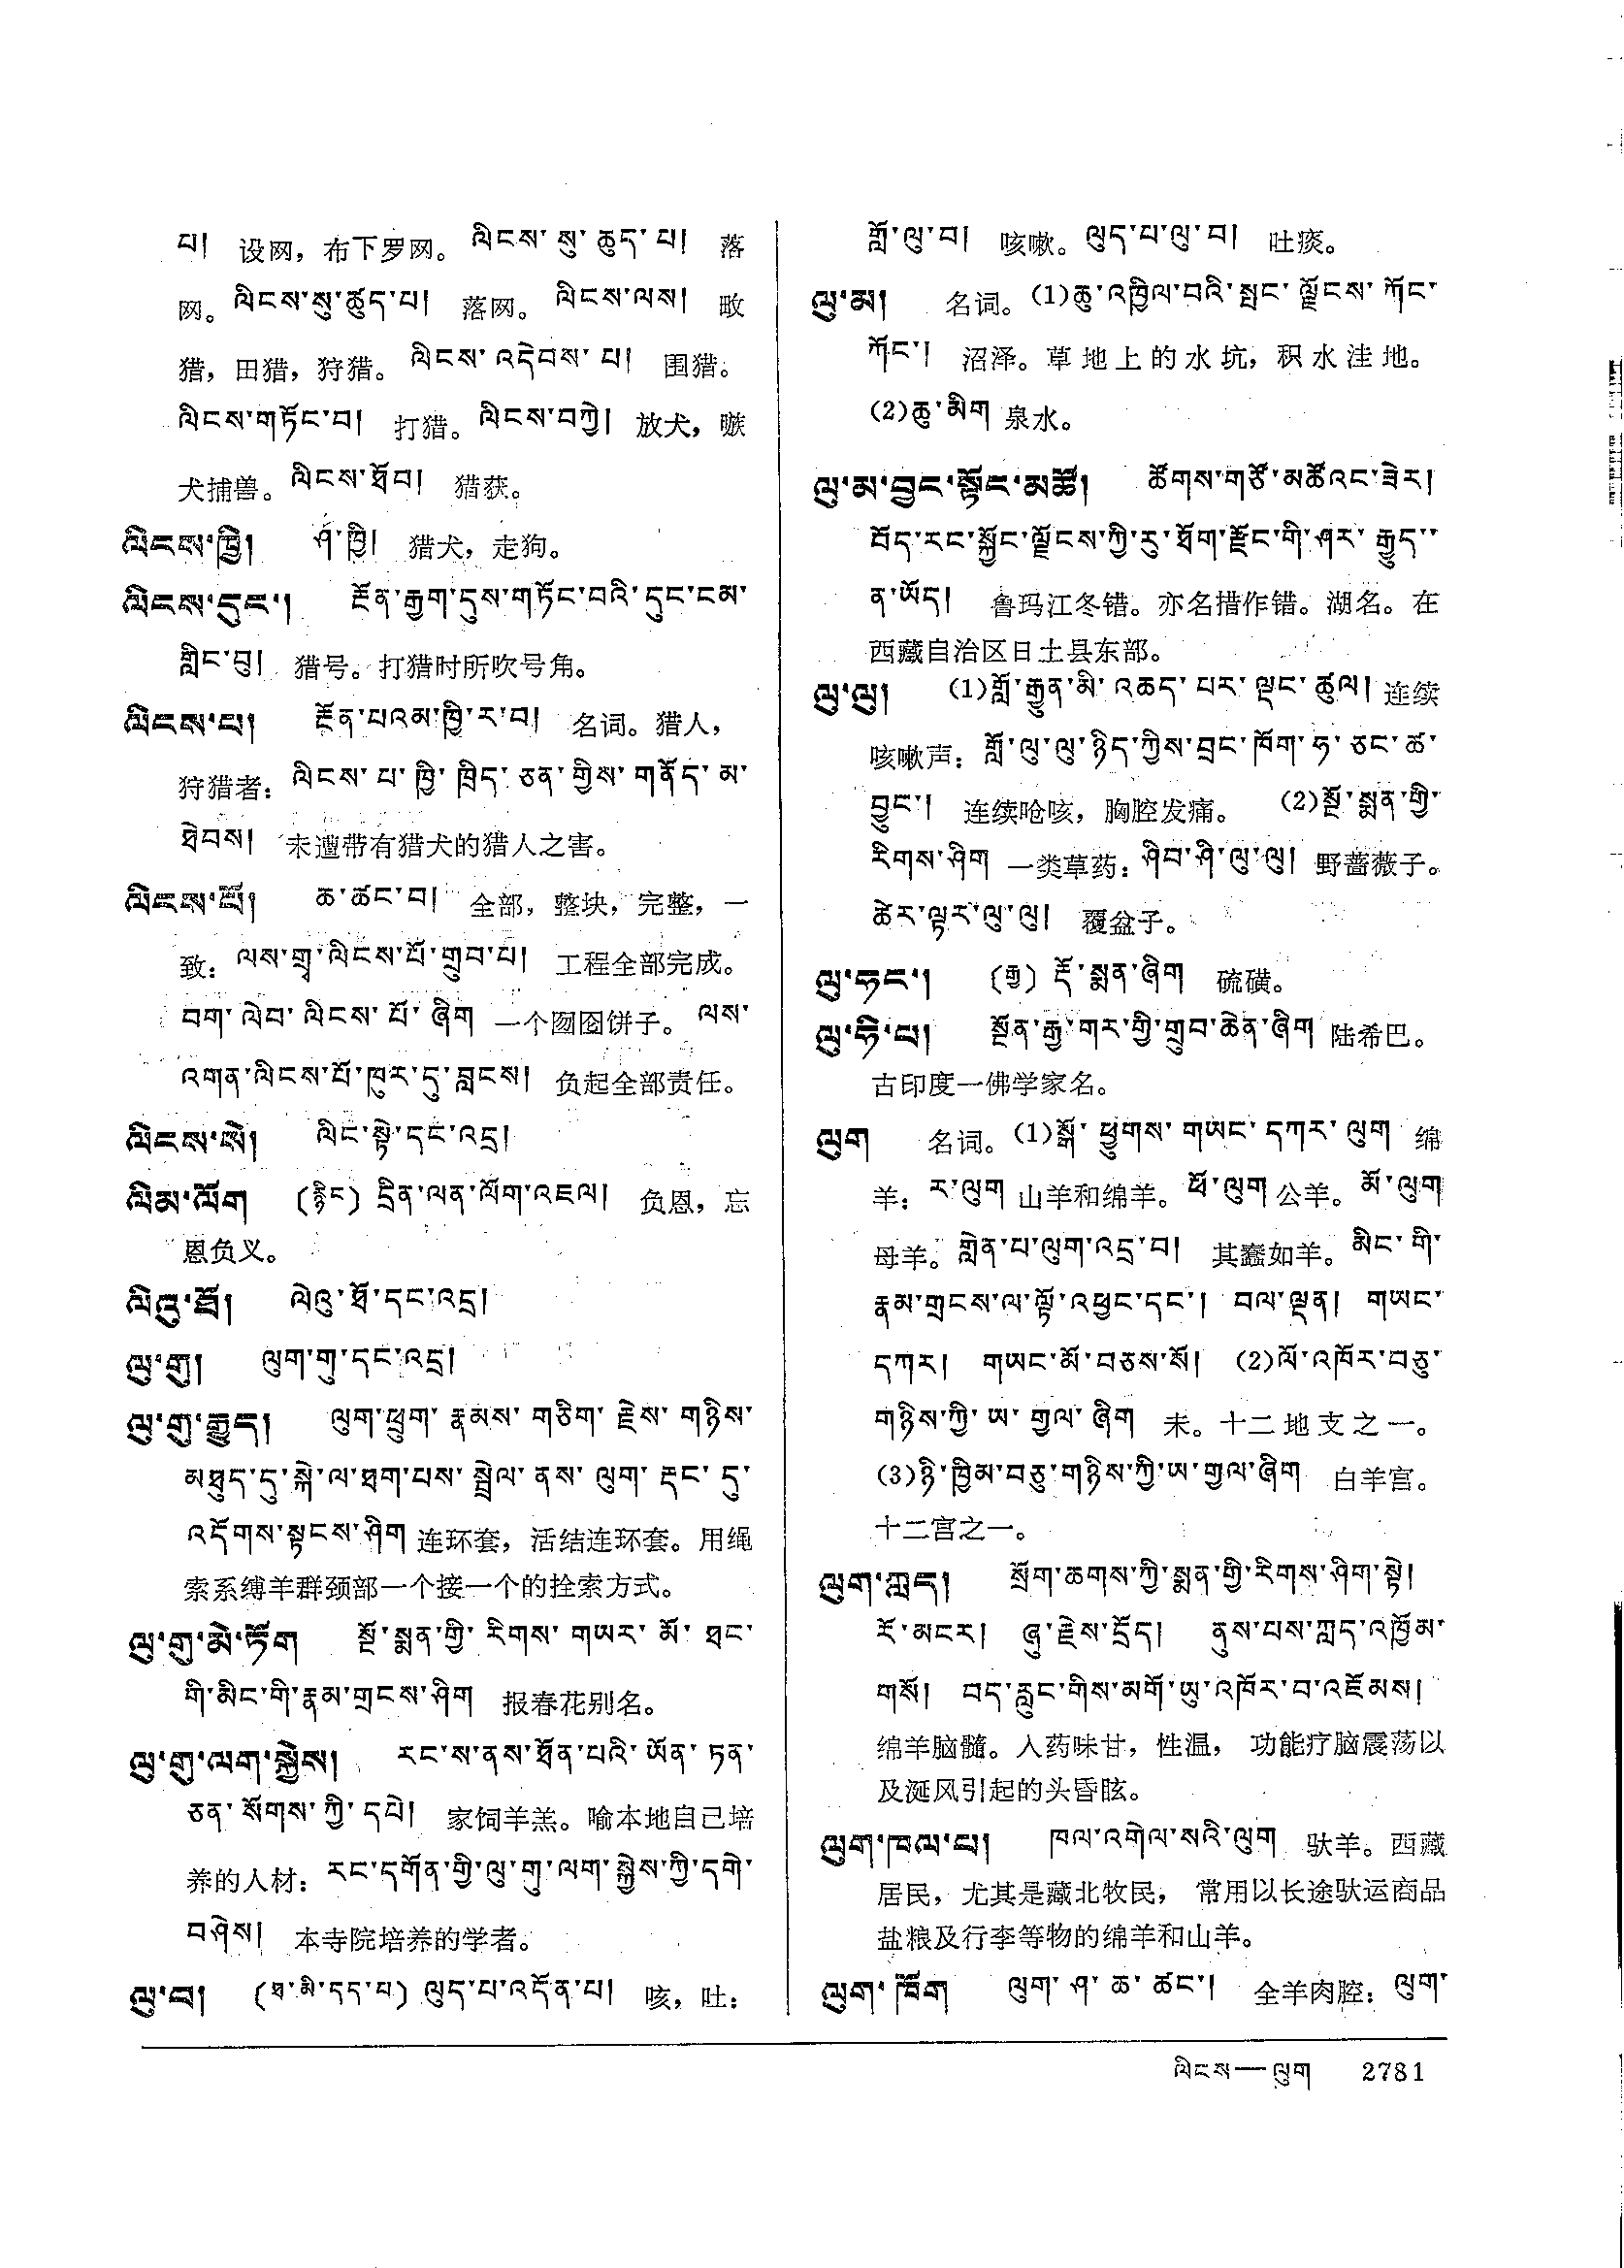 པ། 设网，布下罗网。 ལིངས་སུ་ཆུད་པ། 落
网。 ལིངས་སུ་ཚུད་པ། 落网。 ལིངས་ལས། 畋
猎，田猎，狩猎。 ལིངས་འདེབས་པ། 围猎。
ལིངས་གཏོང་བ། 打猎。 ལིངས་བཀྱེ། 放犬，嗾
犬捕兽。 ལིངས་ཐོབ། 猎获。
ལིངས་ཁྱི། ཤ་ཁྱི། 猎犬，走狗。
ལིངས་དུང་། རྔོན་རྒྱག་དུས་གཏོང་བའི་དུང་ངམ་
གླིང་བུ། 猎号。打猎时所吹号角。
ལིངས་པ། རྔོན་པའམ་ཁྱི་ར་བ། 名词。猎人，
狩猎者： ལིངས་པ་ཁྱི་ཁྲིད་ཅན་གྱིས་གནོད་མ་
ཐེབས། 未遭带有猎犬的猎人之害。
ལིངས་པོ། ཆ་ཚང་བ། 全部，整块，完整，一
致： ལས་གྲྭ་ལིངས་པོ་གྲུབ་པ། 工程全部完成。
བག་ལེབ་ལིངས་པོ་ཞིག 一个囫囵饼子。 ལས་
འགན་ལིངས་པོ་ཁུར་དུ་བླངས། 负起全部责任。
ལིངས་སེ། ལིང་སྟེ་དང་འདྲ།
ལིམ་ལོག (རྙིང) དྲིན་ལན་ལོག་འཇལ། 负恩，忘
恩负义。
ལིའུ་ཐོ། ལེའུ་ཐོ་དང་འདྲ།
ལུ་གུ། ལུག་གུ་དང་འདྲ།
ལུ་གུ་རྒྱུད། ལུག་ཕྲུག་རྣམས་གཅིག་རྗེས་གཉིས་
མཐུད་དུ་སྐེ་ལ་ཐག་པས་སྦྲེལ་ནས་ལུག་རྡང་དུ་
འདོགས་སྟངས་ཤིག 连环套，活结连环套。用绳
索系缚羊群颈部一个接一个的拴索方式。
ལུ་གུ་མེ་ཏོག སྔོ་སྨན་གྱི་རིགས་གཡར་མོ་ཐང་
གི་མིང་གི་རྣམ་གྲངས་ཤིག 报春花别名。
ལུ་གུ་ལག་སྐྱེས། རང་ས་ནས་ཐོན་པའི་ཡོན་ཏན་
ཅན་སོགས་ཀྱི་དཔེ། 家饲羊羔。喻本地自己培
养的人材： རང་དགོན་གྱི་ལུ་གུ་ལག་སྐྱེས་ཀྱི་དགེ་
བཤེས། 本寺院培养的学者。
ལུ་བ། (ཐ་མི་དད་པ) ལུད་པ་འདོན་པ། 咳，吐：
གློ་ལུ་བ། 咳嗽。 ལུད་པ་ལུ་བ། 吐痰。
ལུ་མ། 名词。(1)ཆུ་འཁྱིལ་བའི་སྤང་ལྗོངས་ཀོང་
ཀོང་། 沼泽。草地上的水坑，积水洼地。
(2)ཆུ་མིག 泉水。
ལུ་མ་བྱང་སྟོང་མཚོ། ཚོགས་གཙོ་མཚོའང་ཟེར།
བོད་རང་སྐྱོང་ལྗོངས་ཀྱི་རུ་ཐོག་རྫོང་གི་ཤར་རྒྱུད་
ན་ཡོད། 鲁玛江冬错。亦名措作错。湖名。在
西藏自治区日土县东部。
ལུ་ལུ། (1)གློ་རྒྱུན་མི་འཆད་པར་ལྡང་ཚུལ། 连续
咳嗽声： གློ་ལུ་ལུ་ཉིད་ཀྱིས་བྲང་ཁོག་ཧ་ཅང་ཚ་
བྱུང་། 连续呛咳，胸腔发痛。 (2)སྔོ་སྨན་གྱི་
རིགས་ཤིག 一类草药： ཤིབ་ཤི་ལུ་ལུ། 野蔷薇子。
ཚེར་ལྟར་ལུ་ལུ། 覆盆子。
ལུ་ཧང་། (རྒྱ) རྡོ་སྨན་ཞིག 硫磺。
ལུ་ཧི་པ། སྔོན་རྒྱ་གར་གྱི་གྲུབ་ཆེན་ཞིག 陆希巴。
古印度一佛学家名。
ལུག 名词。(1)སྒོ་ཕྱུགས་གཡང་དཀར་ལུག 绵
羊： ར་ལུག 山羊和绵羊。 ཕོ་ལུག 公羊。 མོ་ལུག
母羊。 གླེན་པ་ལུག་འདྲ་བ། 其蠢如羊。 མིང་གི་
རྣམ་གྲངས་ལ་ལྟོ་འཕྱང་དང་། བལ་ལྡན། གཡང་
དཀར། གཡང་མོ་བཅས་སོ། (2)ལོ་འཁོར་བཅུ་
གཉིས་ཀྱི་ཡ་གྱལ་ཞིག 未。十二地支之一。
(3)ཉི་ཁྱིམ་བཅུ་གཉིས་ཀྱི་ཡ་གྱལ་ཞིག 白羊宫。
十二宫之一。
ལུག་ཀླད། སྲོག་ཆགས་ཀྱི་སྨན་གྱི་རིགས་ཤིག་སྟེ།
རོ་མངར། ཞུ་རྗེས་དྲོད། ནུས་པས་ཀླད་འཁྱོམ་
གསོ། བད་རླུང་གིས་མགོ་ཡུ་འཁོར་བ་འཇོམས།
绵羊脑髓。入药味甘，性温， 功能疗脑震荡以
及涎风引起的头昏眩。
ལུག་ཁལ་པ། ཁལ་འགེལ་སའི་ལུག 驮羊。西藏
居民，尤其是藏北牧民， 常用以长途驮运商品
盐粮及行李等物的绵羊和山羊。
ལུག་ཁོག ལུག་ཤ་ཆ་ཚང་། 全羊肉腔： ལུག་
ལིངས—ལུག 2781